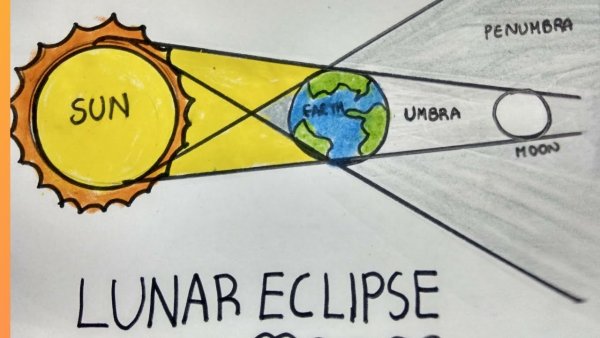 PENUMBRA
SUN
EARTH
UMBRA
MOON
LUNAR ECLIPSE